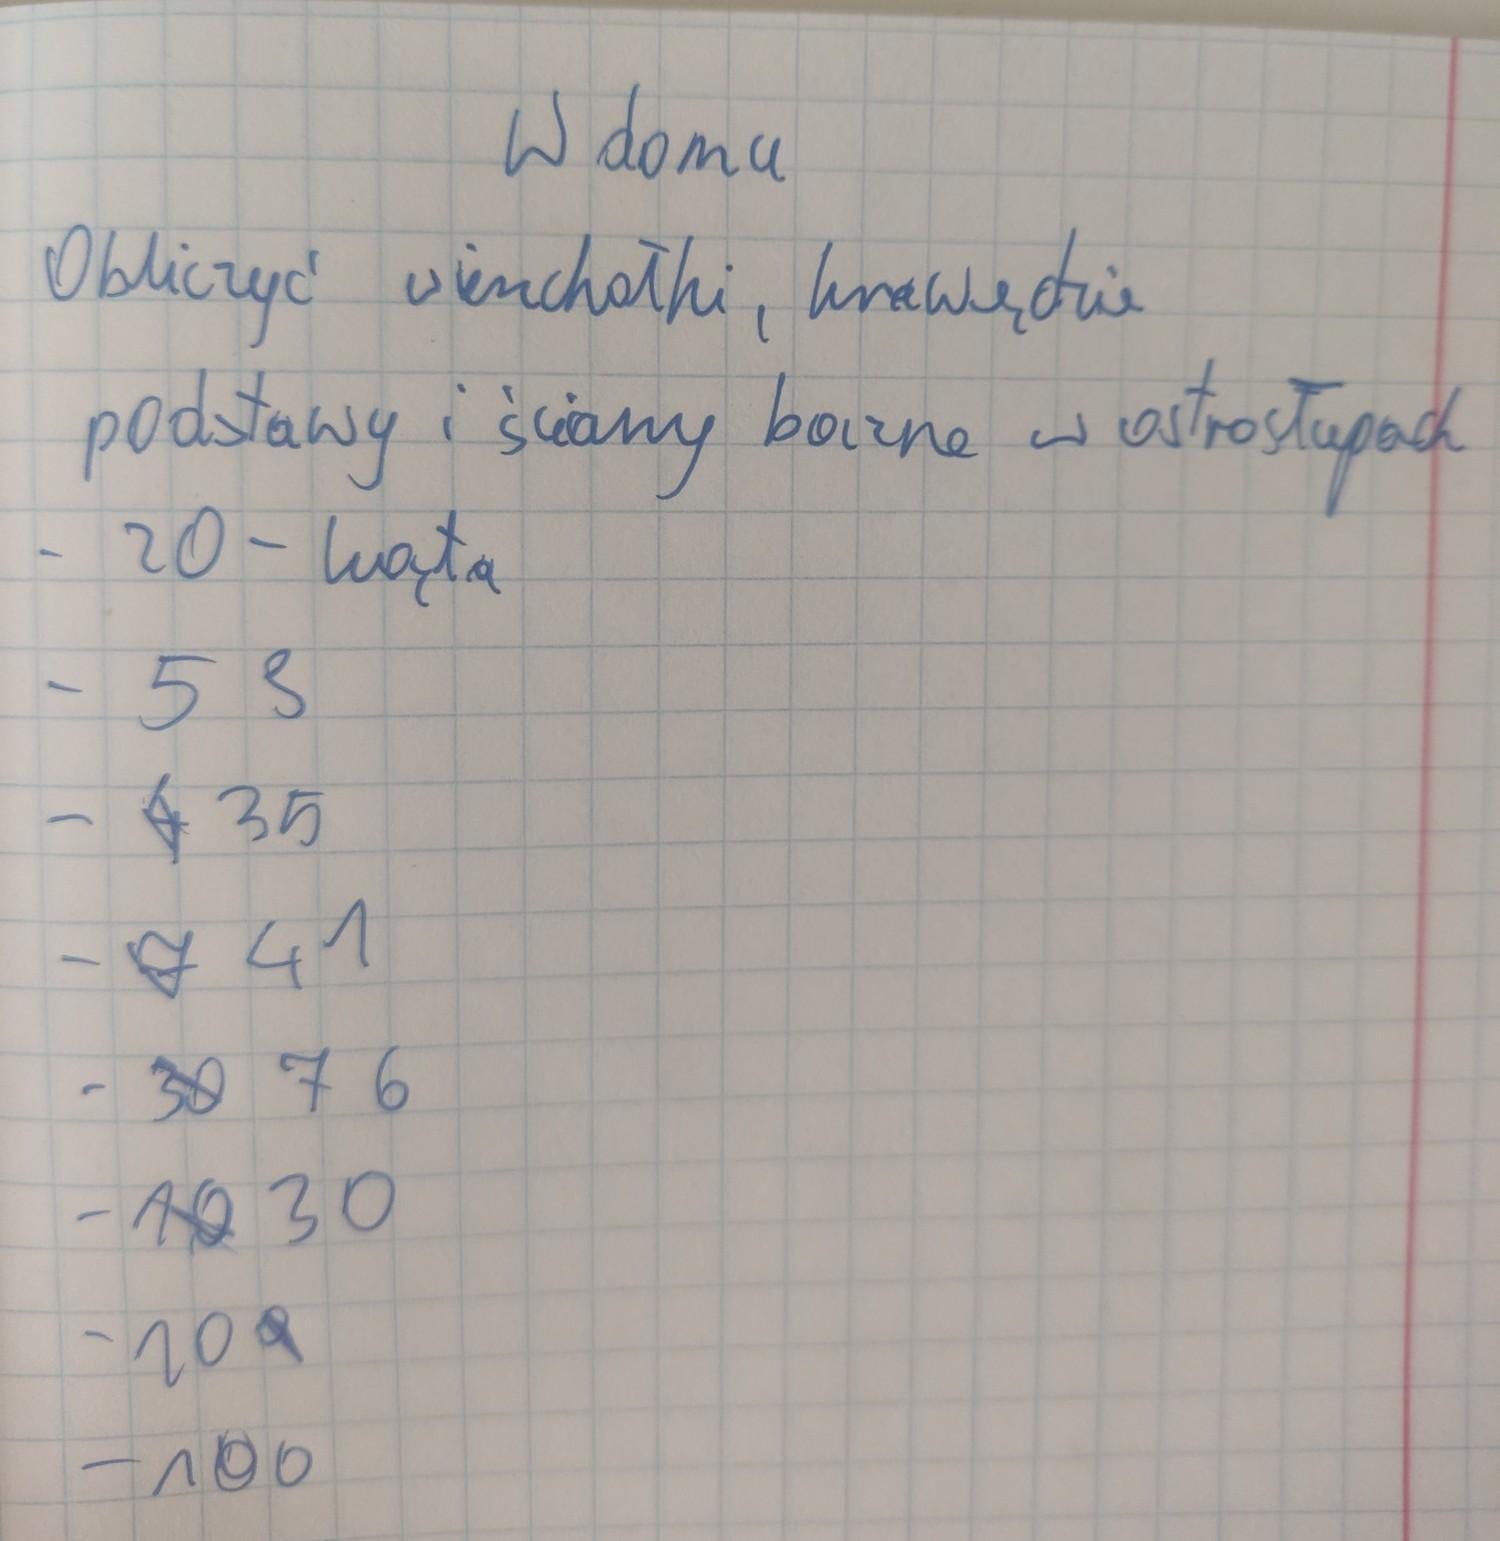 W domu
Obliczyć wierzchołki, krawędzie
podstawy i ściany boczne w ostrosłupach
- 20 - kąta
- 53
- 35
- 41
- 76
- 30
- 10
- 100